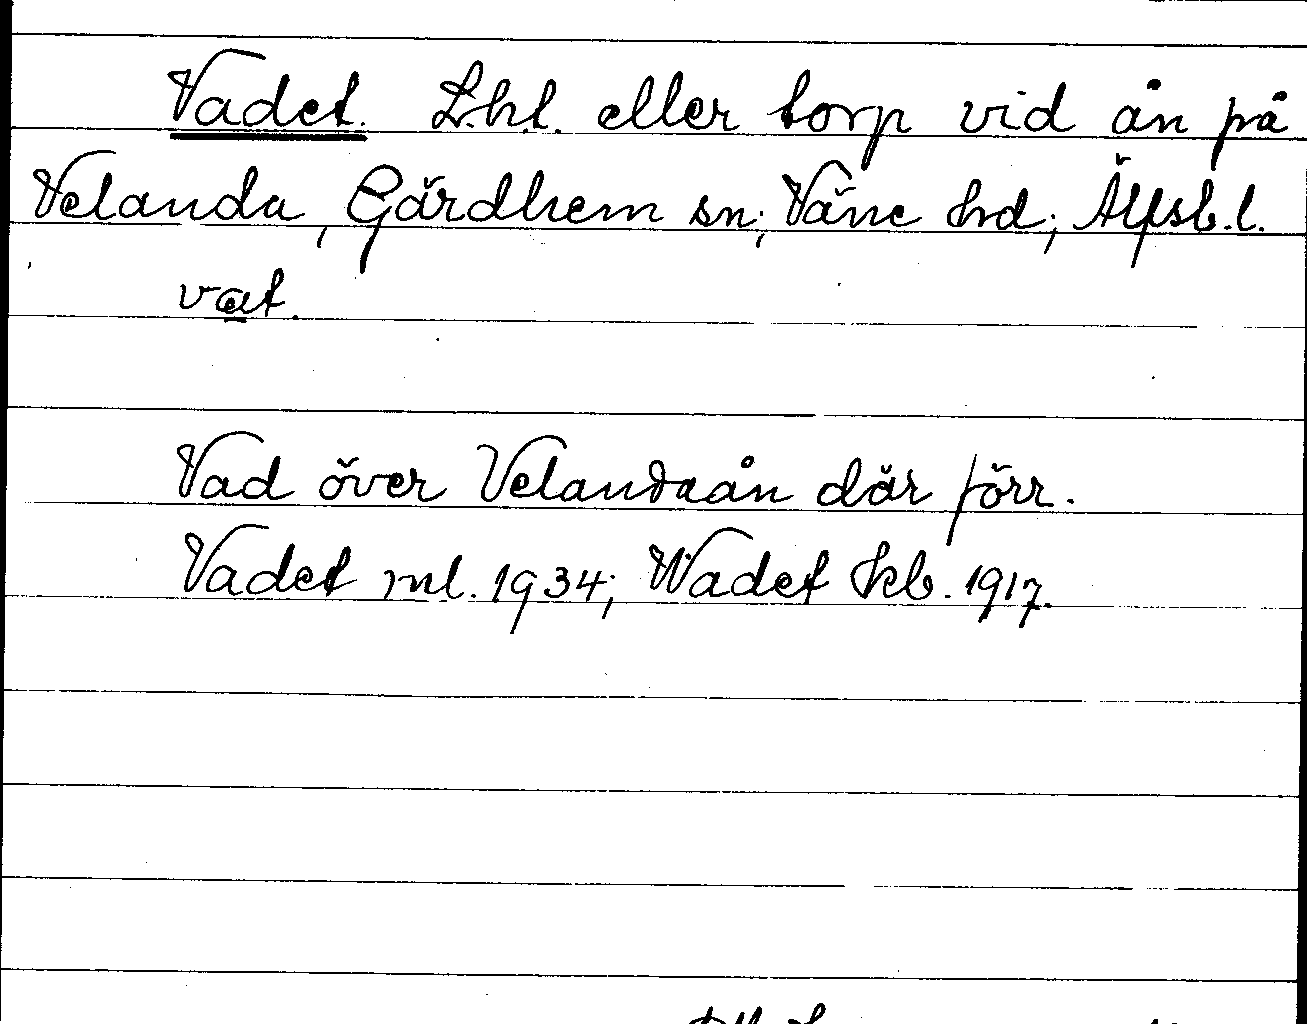 Vadet. L.h.t. eller torp vid ån på
Velanda, Gärdhem sn; Väne hd; Älfsb.l.
vat.
Vad över Velandaån där förr.
Vadet ml. 1934; Wadet kb. 1917.